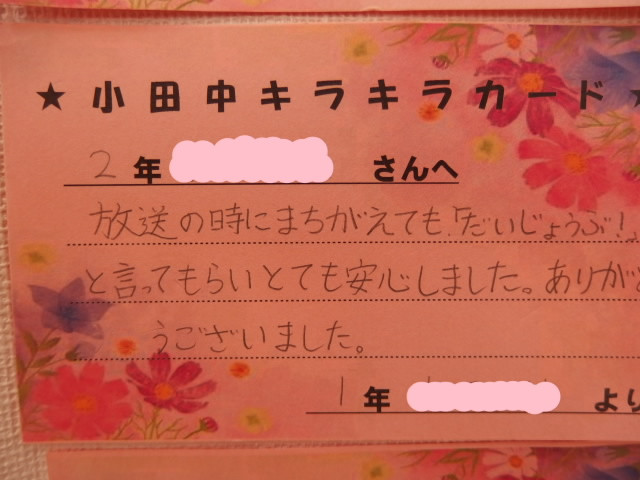 ★小田中キラキラカード★
2年 さんへ
放送の時にまちがえても、「だいじょうぶ!」
と言ってもらいとても安心しました。ありがと
うございました。
1年 より